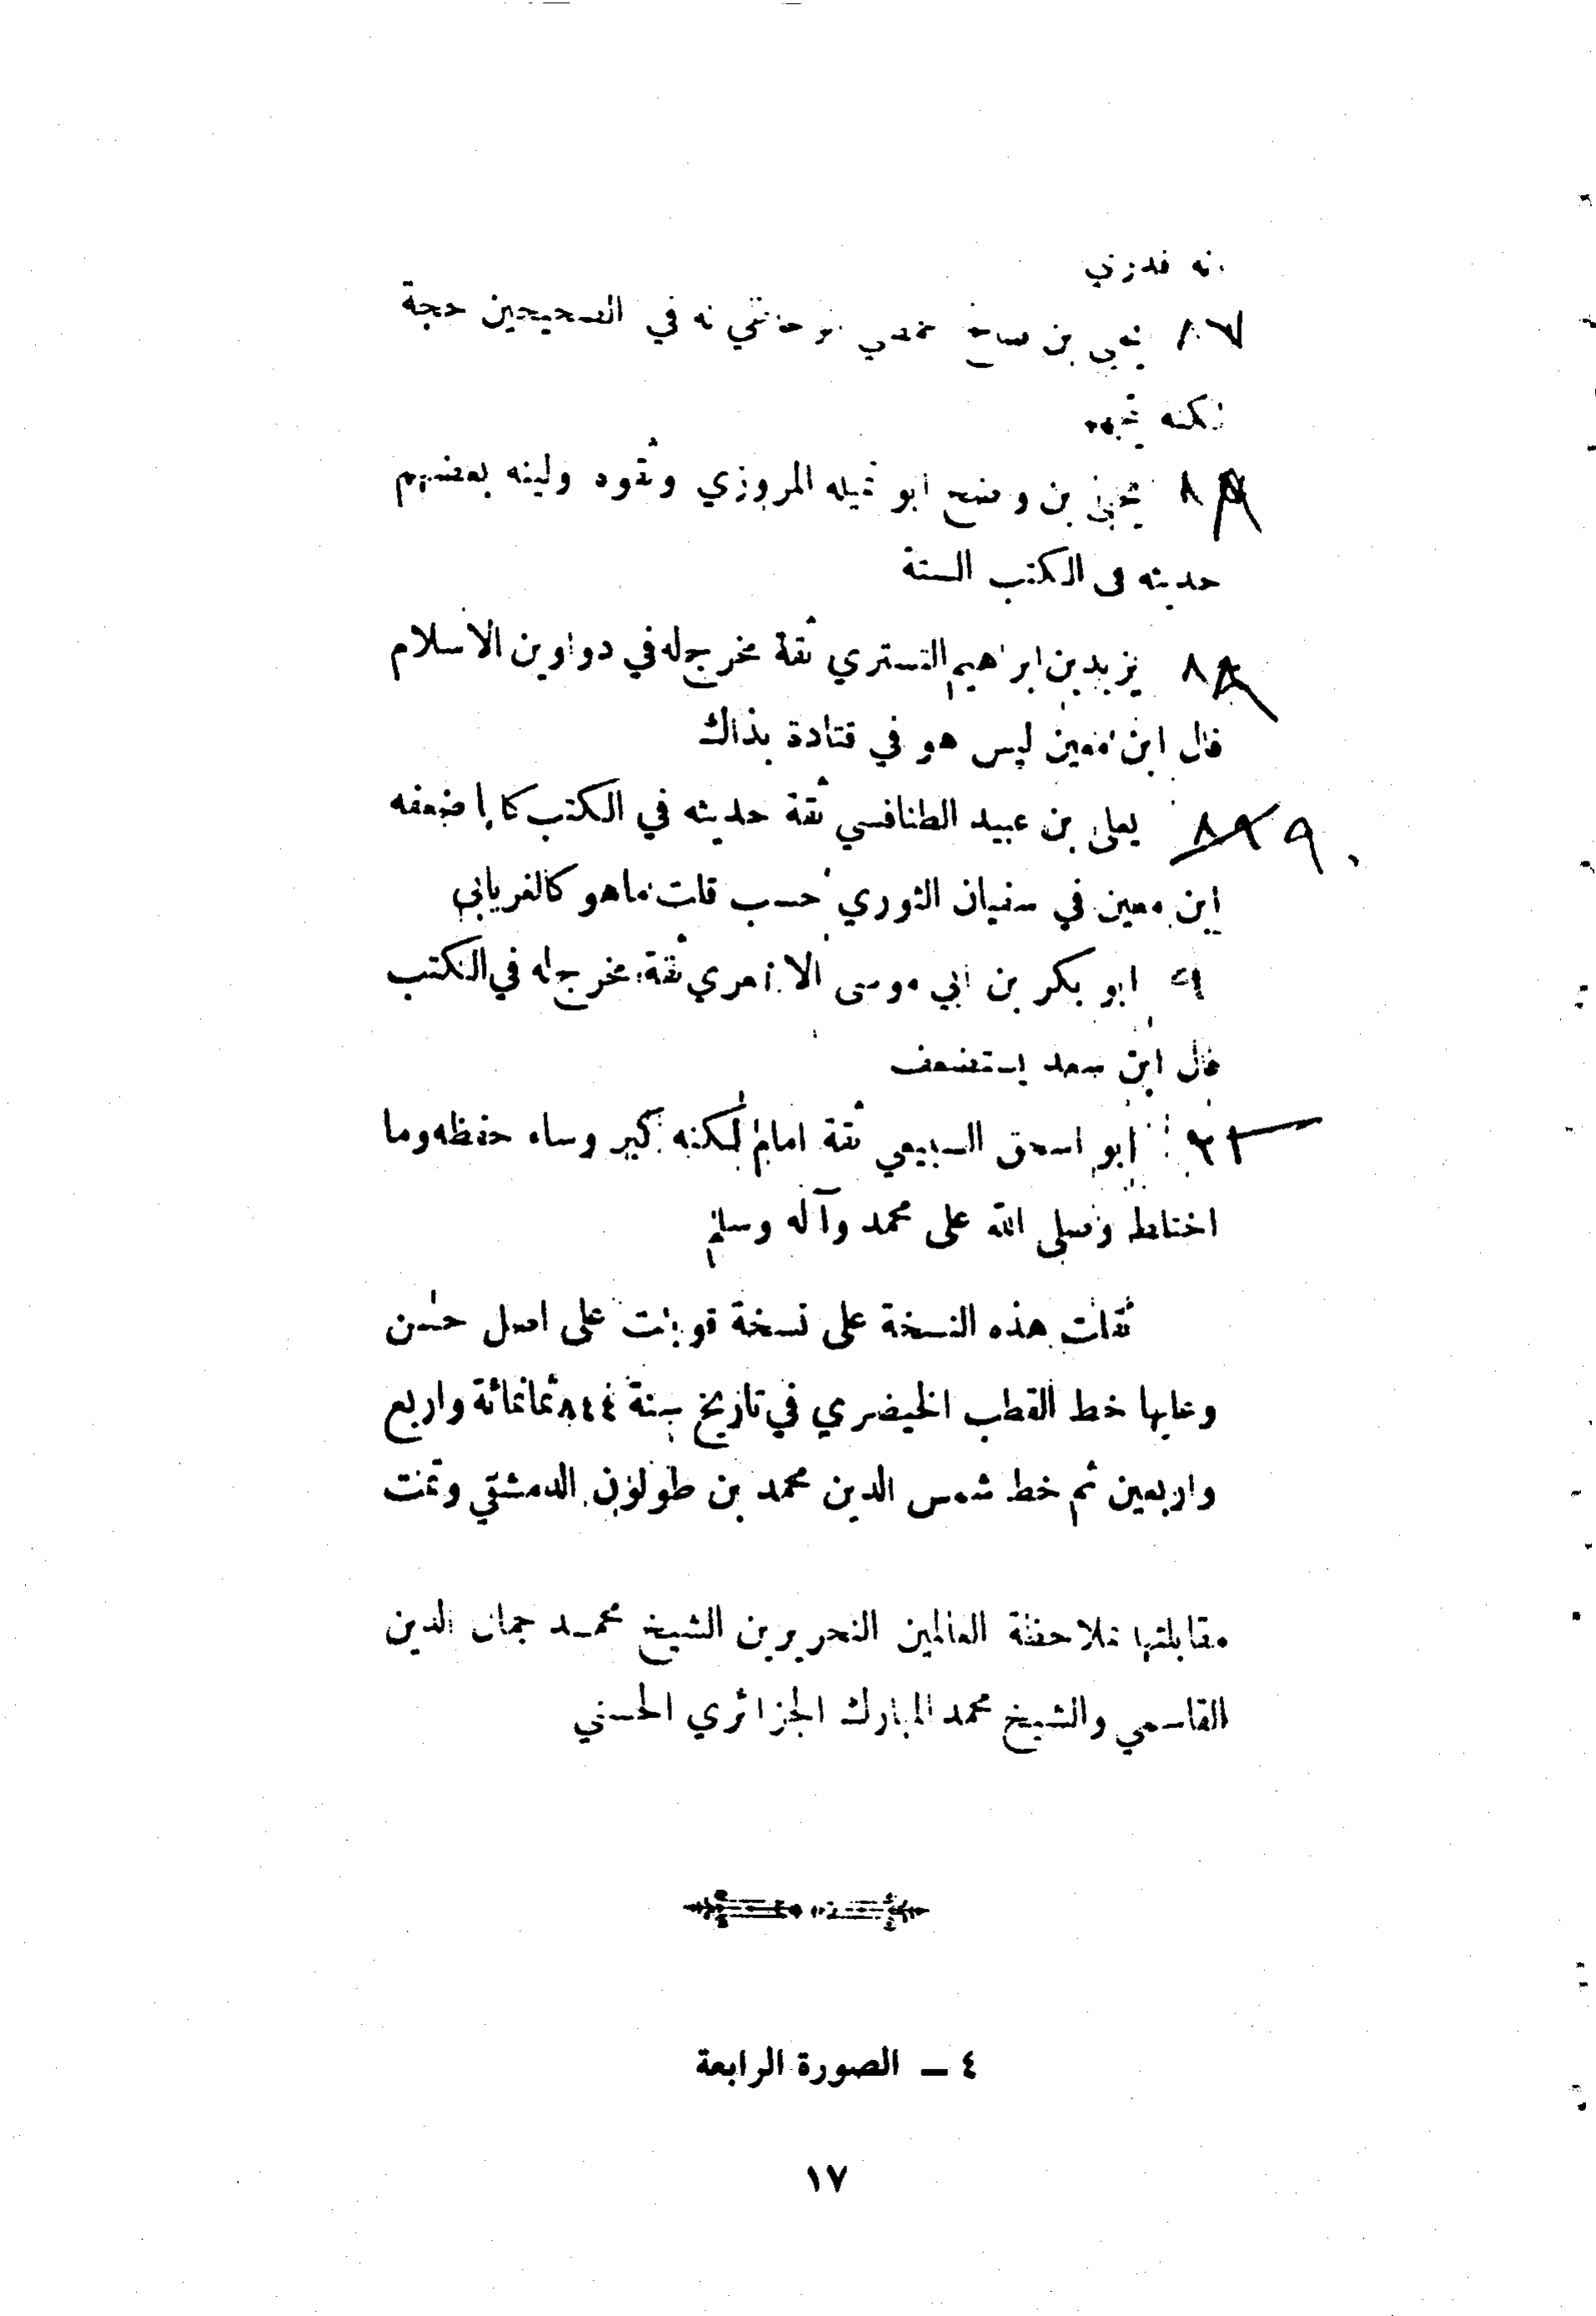 انه قدري
٨٧ يحيى بن صالح حمصي له في الصحيحين حجة
لكنه تجهم
٨٨ يحيى بن وضح ابو تميله المروزي وثقوه ولينه بعضهم
حديثه في الكتب الستة
٨٨ يزيد بن ابراهيم التستري ثقة مخرج له في دواوين الاسلام
قال ابن معين ليس هو في قتادة بذاك
٨٩ ٩ يعلى بن عبيد الطنافسي ثقة حديثه في الكتب كلها ضعفه
ابن معين في سفيان الثوري حسب قلت ما هو كالفريابي
ابو بكر بن ابي موسى الاشعري ثقة مخرج له في الكتب
قال ابن سعد يستضعف
ابو اسحق السبيعي ثقة امام لكنه كبر وساء حفظه وما
اختلط وصلى الله على محمد وآله وسلم
نقلت هذه النسخة على نسخة قوبلت على اصل حسن
وعليها خط القطب الخيضري في تاريخ سنة ٨٤٤ ثمانمائة واربع
واربعين ثم خط شمس الدين محمد بن طولون الدمشقي وتمت
مقابلتها بملاحظة العالمين النحريرين الشيخ محمد جمال الدين
القاسمي والشيخ محمد المبارك الجزائري الحسني
٤ – الصورة الرابعة
١٧